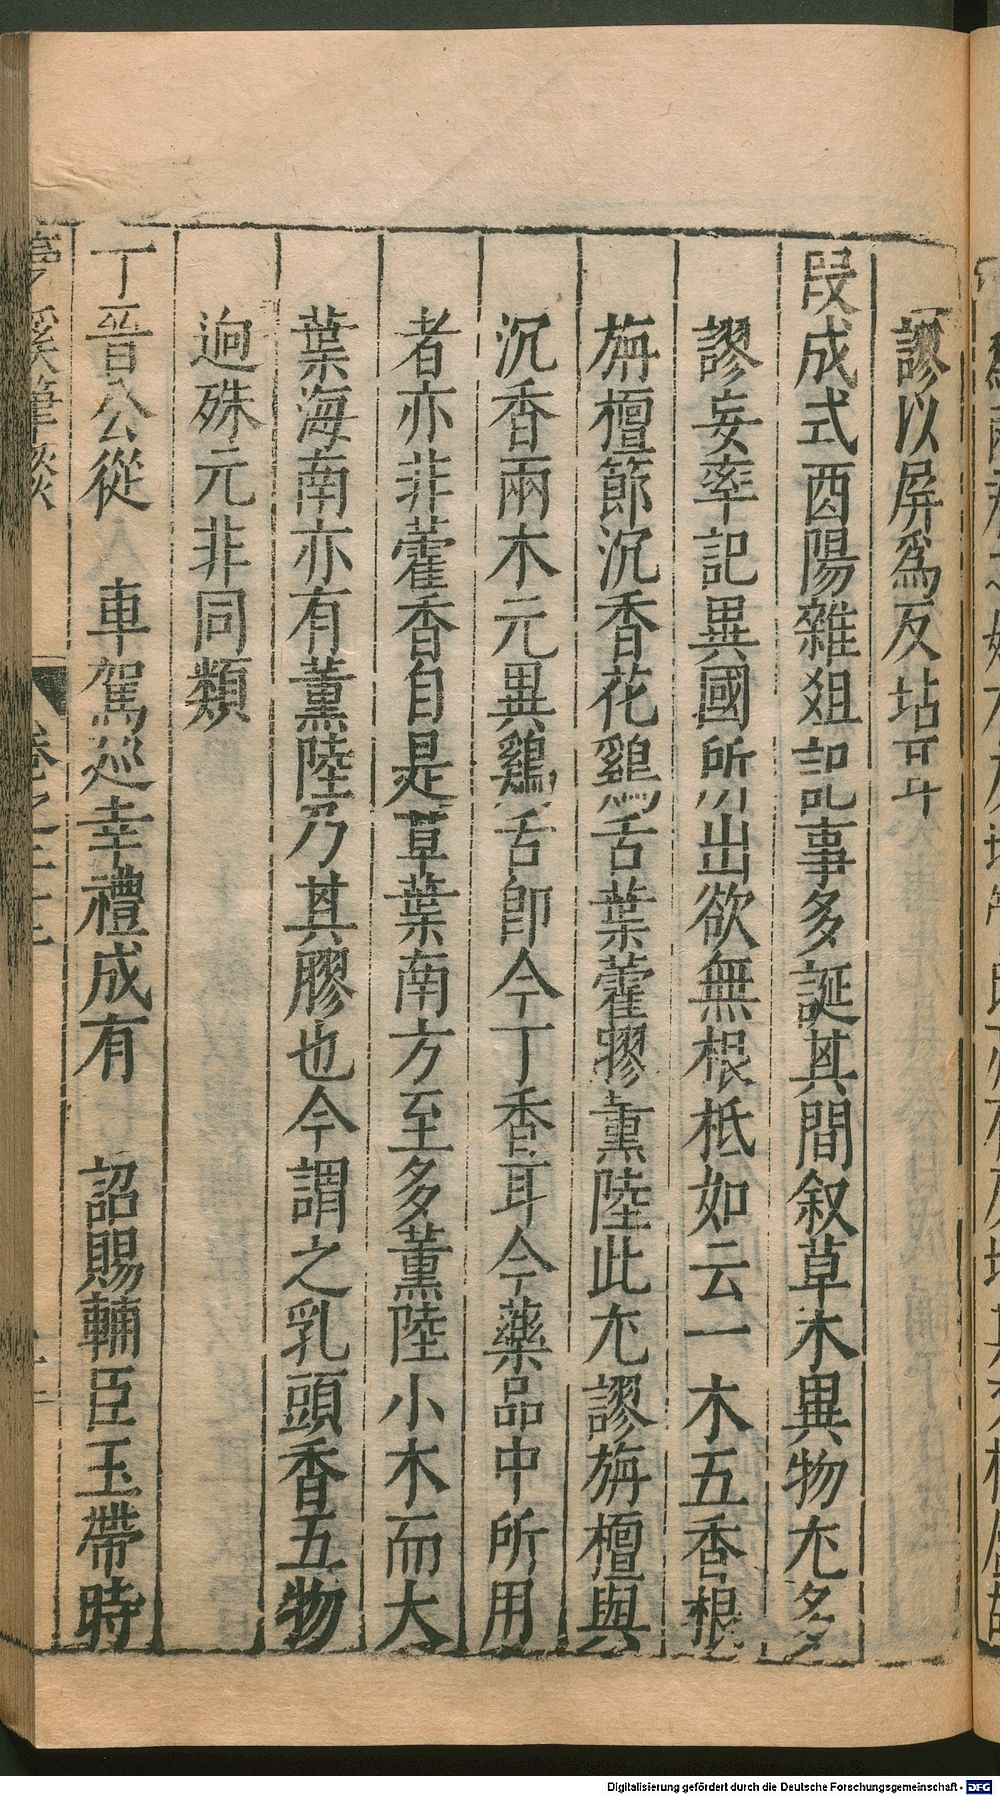 謬以屏爲反坫耳
段成式酉陽雜俎記事多誕其間叙草木異物尤多
謬妄率記異國所出欲無根柢如云一木五香根
旃檀節沉香花鷄舌葉藿膠薰陸此尤謬旃檀與
沉香兩木元異鷄舌卽今丁香耳今藥品中所用
者亦非藿香自是草葉南方至多薰陸小木而大
葉海南亦有薰陸乃其膠也今謂之乳頭香五物
迥殊元非同類
丁晉公從 車駕巡幸禮成有 詔賜輔臣玉帶時
夢溪筆談 卷之二十二
Digitalisierung gefördert durch die Deutsche Forschungsgemeinschaft - DFG